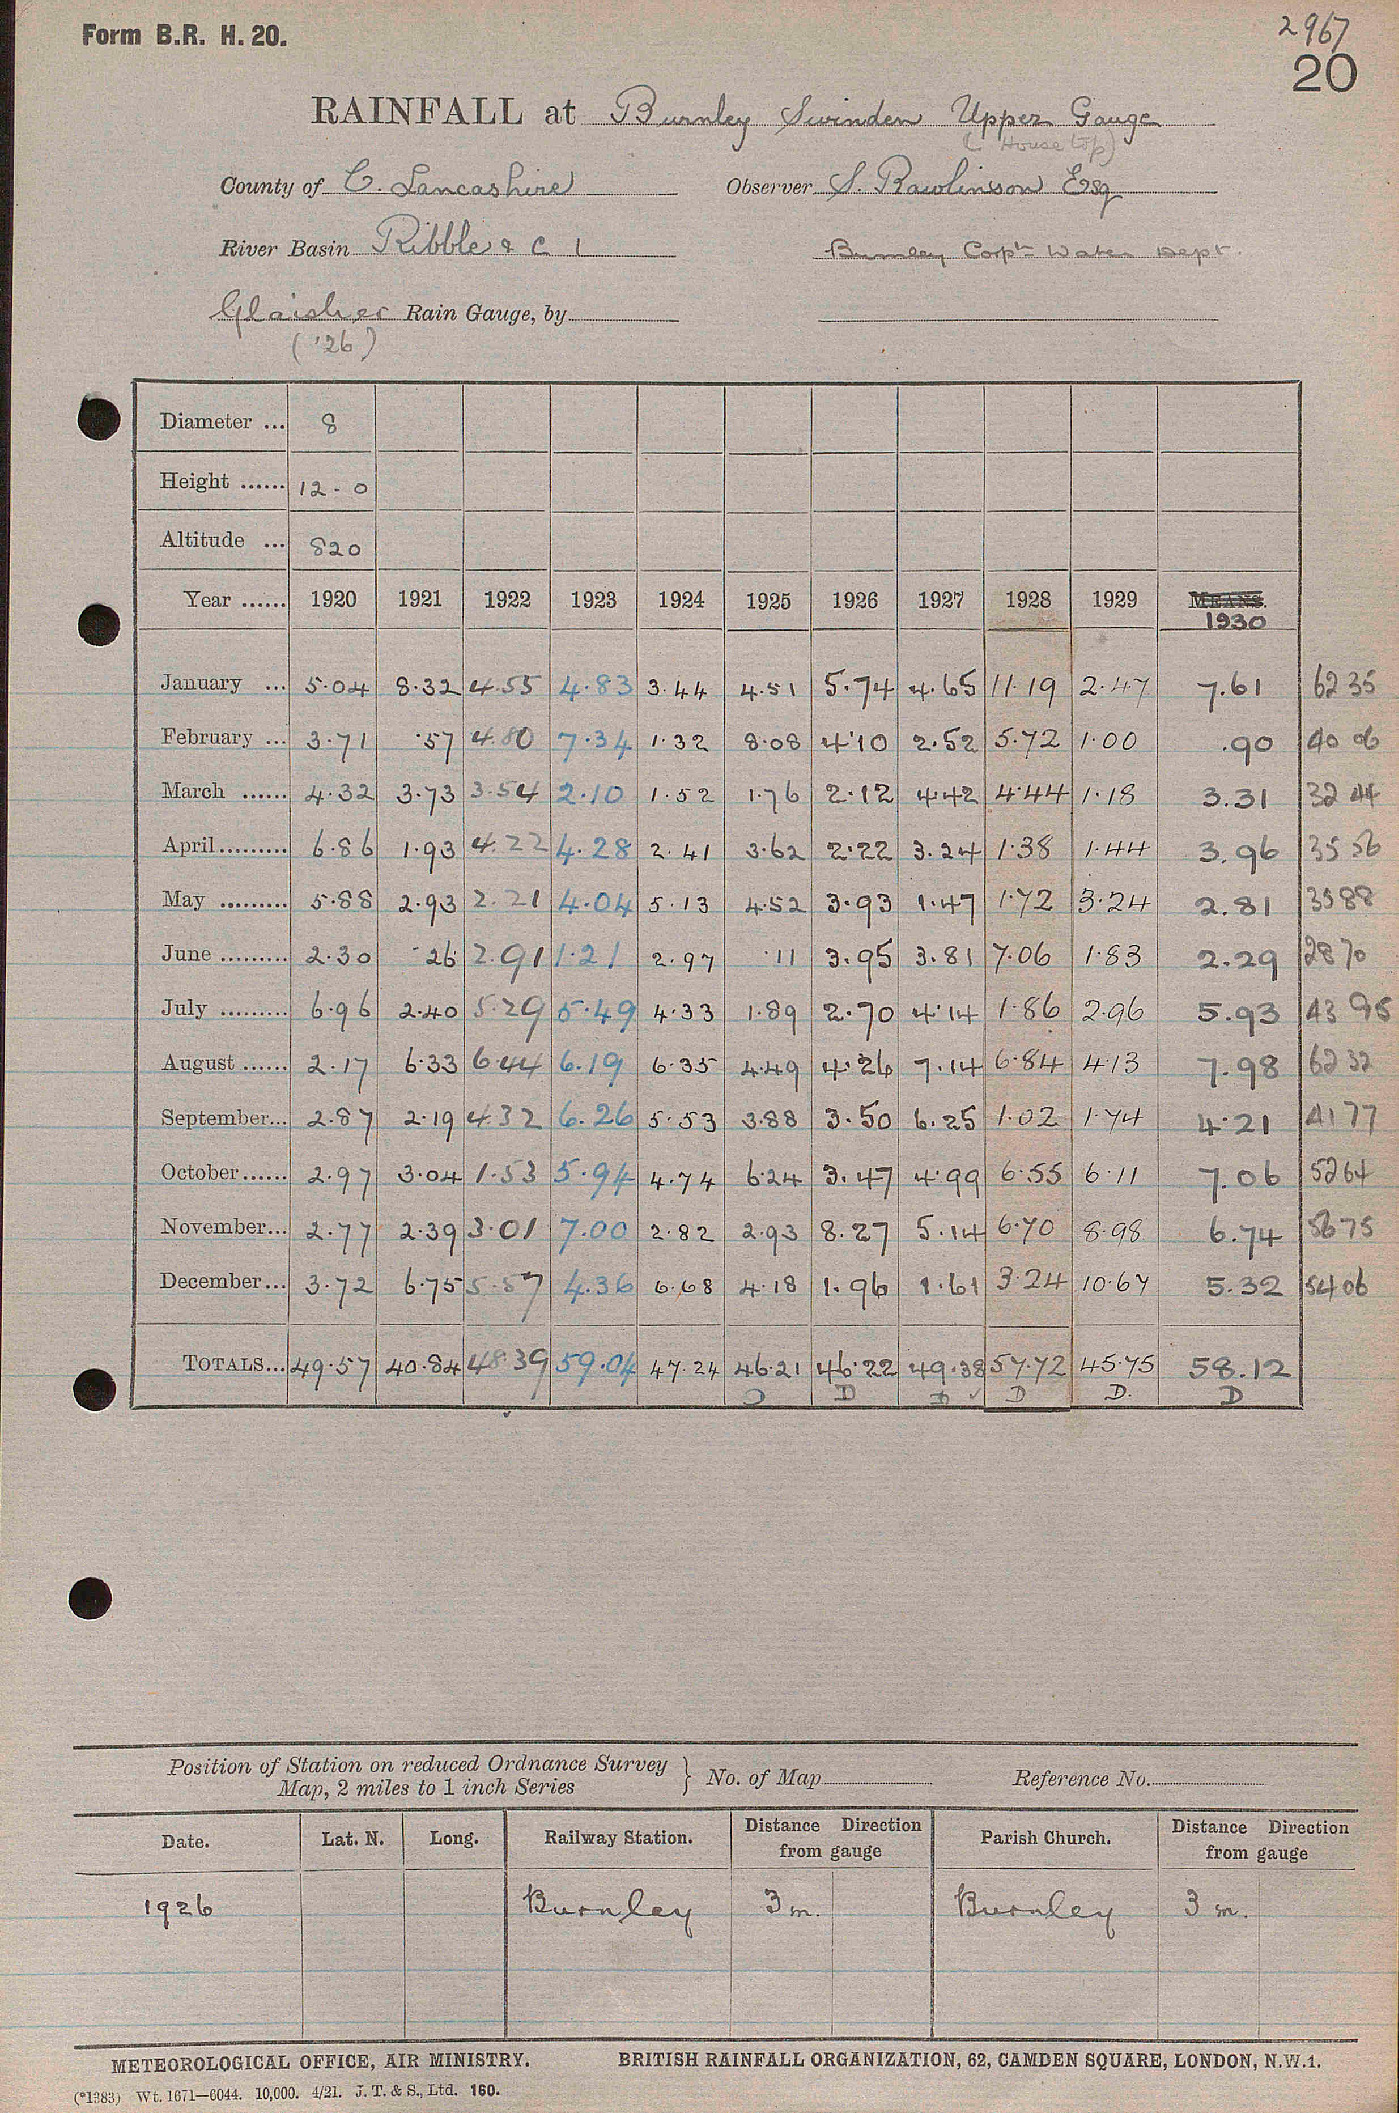 Form B.R. H. 20.
2967
20
RAINFALL at Burnley Swinden Upper Gauge
(House top)
County of C. Lancashire Observer S. Rawlinson Esq
River Basin Ribble & C 1 Burnley Corpn Water Dept.
Glaisher Rain Gauge, by
('26)
Diameter ... 8
Height ...... 12-0
Altitude ... 820
Year ...... 1920 1921 1922 1923 1924 1925 1926 1927 1928 1929 MEANS. 1930
January ... 5.04 8.32 4.55 4.83 3.44 4.51 5.74 4.65 11.19 2.47 7.61 62 35
February ... 3.71 .57 4.80 7.34 1.32 8.08 4.10 2.52 5.72 1.00 .90 40 06
March ...... 4.32 3.73 3.54 2.10 1.52 1.76 2.12 4.42 4.44 1.18 3.31 32 44
April ......... 6.86 1.93 4.22 4.28 2.41 3.62 2.22 3.24 1.38 1.44 3.96 35 56
May ......... 5.88 2.93 2.21 4.04 5.13 4.52 3.93 1.47 1.72 3.24 2.81 35 88
June ......... 2.30 .26 2.91 1.21 2.97 .11 3.95 3.81 7.06 1.83 2.29 28 70
July ......... 6.96 2.40 5.29 5.49 4.33 1.89 2.70 4.14 1.86 2.96 5.93 43 95
August ...... 2.17 6.33 6.44 6.19 6.35 4.49 4.26 7.14 6.84 4.13 7.98 62 32
September... 2.87 2.19 4.32 6.26 5.53 3.88 3.50 6.25 1.02 1.74 4.21 41 77
October...... 2.97 3.04 1.53 5.94 4.74 6.24 3.47 4.99 6.55 6.11 7.06 52 64
November... 2.77 2.39 3.01 7.00 2.82 2.93 8.27 5.14 6.70 8.98 6.74 56 75
December... 3.72 6.75 5.57 4.36 6.68 4.18 1.96 1.61 3.24 10.67 5.32 54 06
TOTALS... 49.57 40.84 48.39 59.04 47.24 46.21 46.22 49.38 57.72 45.75 58.12
D D D ✓ D D. D
Position of Station on reduced Ordnance Survey
Map, 2 miles to 1 inch Series } No. of Map Reference No.
Date. Lat. N. Long. Railway Station. Distance Direction from gauge Parish Church. Distance Direction from gauge
1926 Burnley 3 m. Burnley 3 m.
METEOROLOGICAL OFFICE, AIR MINISTRY. BRITISH RAINFALL ORGANIZATION, 62, CAMDEN SQUARE, LONDON, N.W.1.
(*1383) Wt. 1671—6044. 10,000. 4/21. J. T. & S., Ltd. 160.